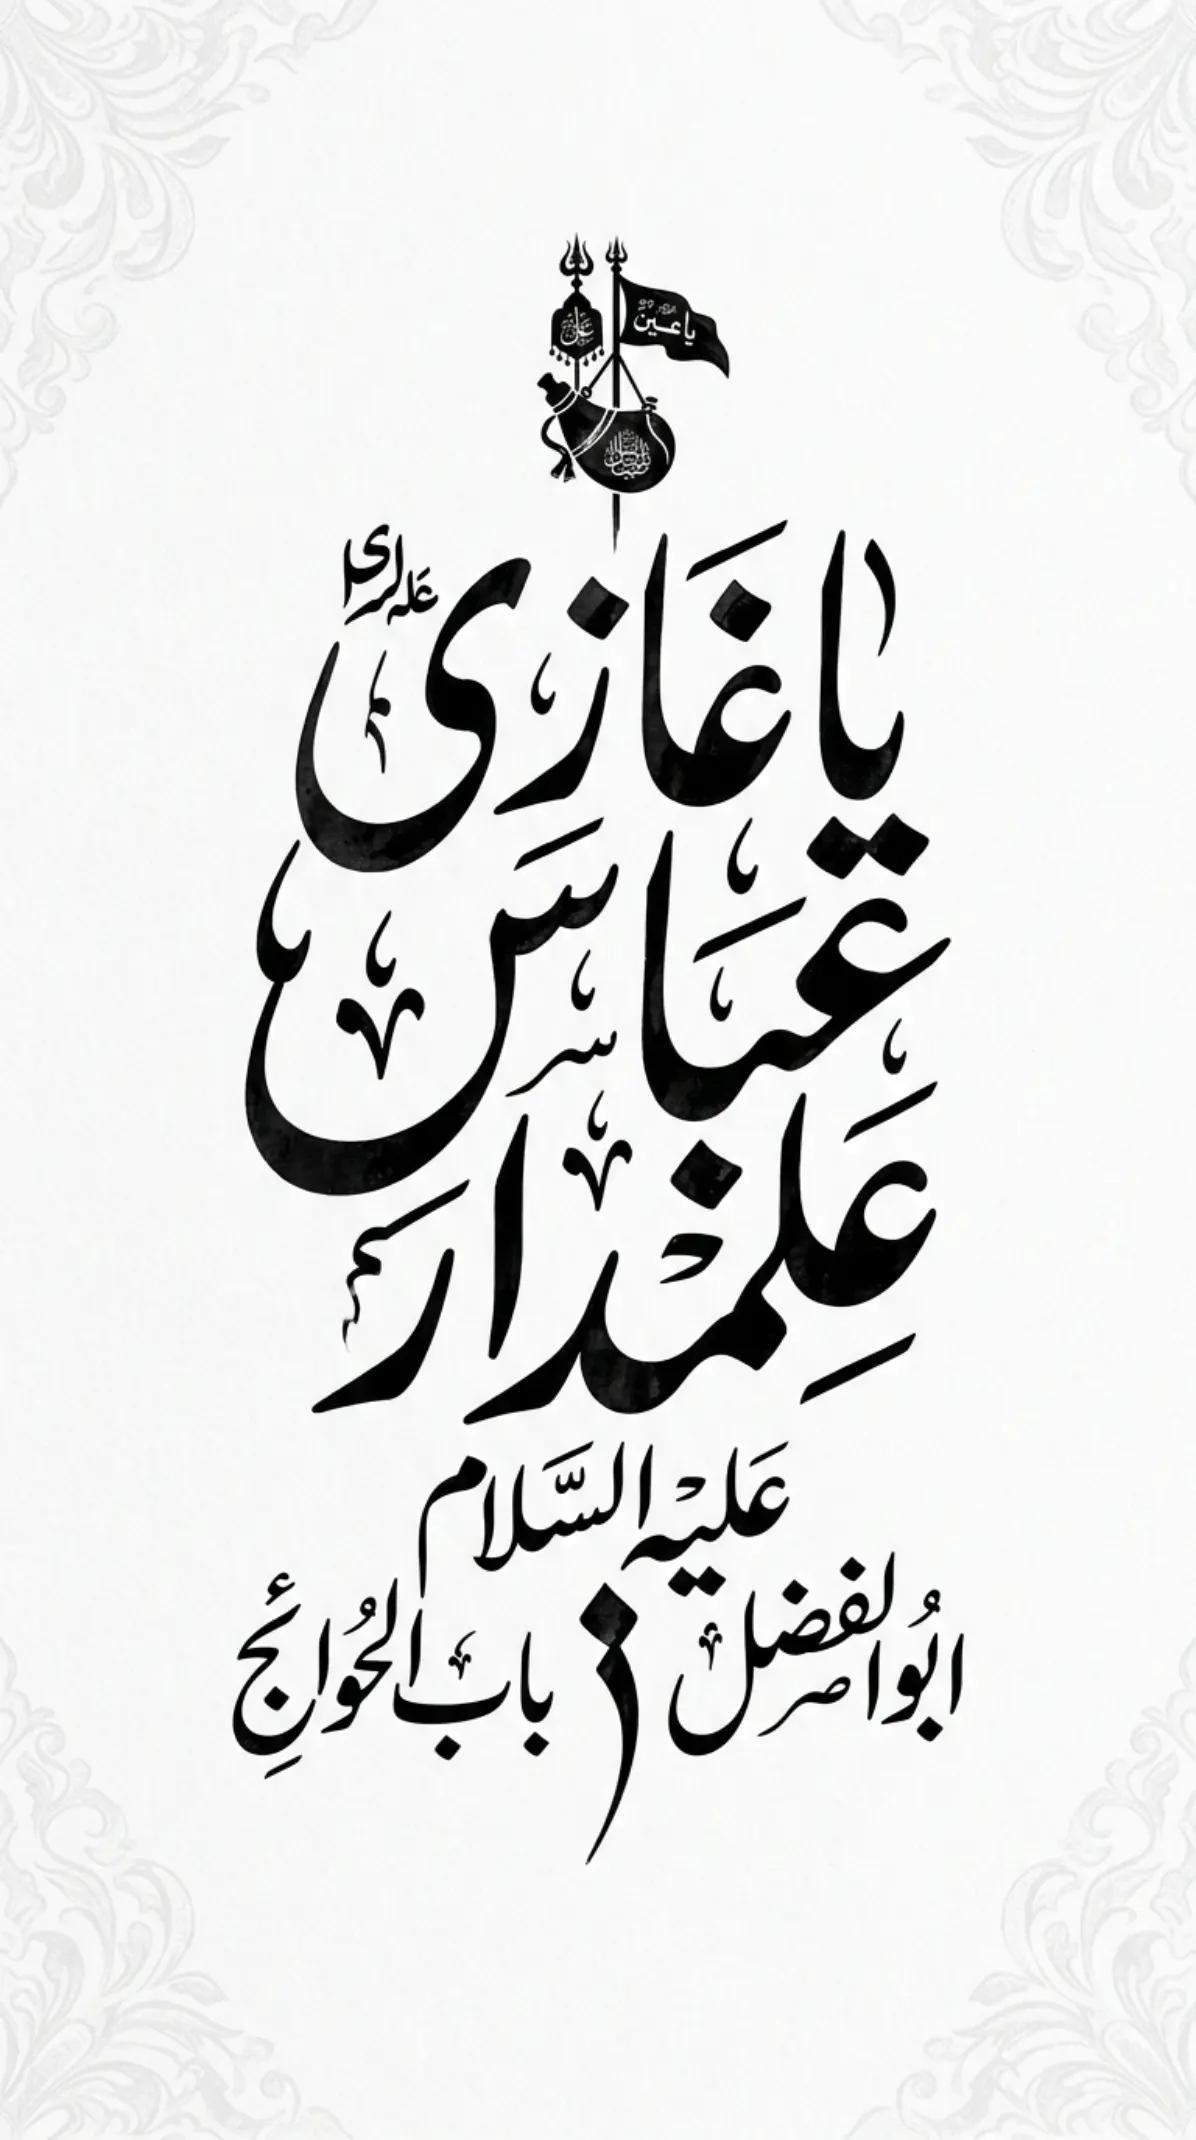 یا غازی
عباس
علمدار
عَلیه السَّلام
ابُوالفضل
باب الحُوائِج